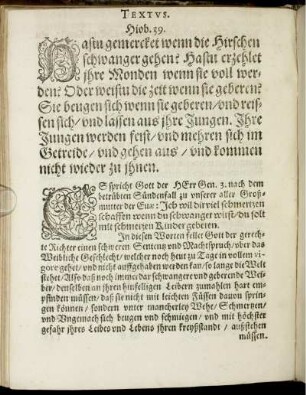 TEXTVS.
Hiob. 39.
Hastu gemercket wenn die Hirschen
schwanger gehen? Hastu erzehlet
jhre Monden wenn sie voll wer-
den? Oder weistu die zeit wenn sie geberen?
Sie beugen sich wenn sie geberen/ vnd reis-
sen sich/ vnd lassen aus jhre Jungen. Jhre
Jungen werden feist/ vnd mehren sich im
Getreide/ vnd gehen aus/ vnd kommen
nicht wieder zu jhnen.
ES spricht Gott der HErr Gen. 3. nach dem
betrübten Sündenfall zu vnserer aller Groß-
mutter der Eva: Jch wil dir viel schmertzen
schaffen wenn du schwanger wirst/ du solt
mit schmertzen Kinder geberen.
In diesen Worten fellet Gott der gerech-
te Richter einen schweren Sententz vnd Machtspruch/ vber das
Weibliche Geschlecht/ welcher noch heut zu Tage in vollem vi-
gore gehet/ vnd nicht auffgehaben werden kan/ so lange die Welt
stehet/ Also daß noch immerdar schwangere vnd geberende Wei-
ber/ denselben an jhren hinfelligen Leibern zumahlen hart em-
pfinden müssen/ daß sie nicht mit leichten Füssen davon sprin-
gen können/ sondern vnter mancherley Wehe/ Schmertzen/
vnd Vngemach sich beugen vnd schmiegen/ vnd mit höchster
gefahr jhres Leibes vnd Lebens jhren kreyßstandt/ außstehen
müssen.